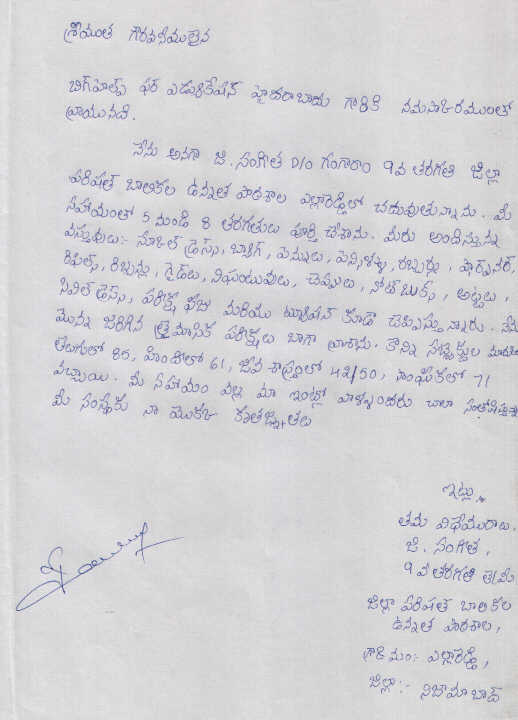 శ్రీమంత గౌరవనీములైన
బిగ్‌హెల్ప్ ఫర్ ఎడ్యుకేషన్ హైదరాబాదు గారికి నమస్కారములతో
వ్రాయునది.
నేను అనగా జి. సంగీత D/o గంగారాం 9వ తరగతి జిల్లా
పరిషత్ బాలికల ఉన్నత పాఠశాల ఎల్లారెడ్డిలో చదువుతున్నాను. మీ
సహాయంతో 5 నుండి 8 తరగతులు పూర్తి చేశాను. మీరు అందిస్తున్న
వస్తువులు:- స్కూల్ డ్రెస్స్, బ్యాగ్, పెన్నులు, పెన్సిళ్ళు, రబ్బర్లు, షార్ప్‌నర్,
రిఫిల్స్, రిబ్బన్లు, గైడ్‌లు, నిఘంటువులు, చెప్పులు, నోట్‌బుక్స్, అట్టలు,
సివిల్ డ్రెస్స్, పరీక్ష ఫీజు మరియు ట్యూషన్ కూడా చెప్పిస్తున్నారు. నేను
మొన్న జరిగిన త్రైమాసిక పరీక్షలు బాగా రాశాను. కొన్ని సబ్జెక్టుల
తెలుగులో 85, హిందీలో 61, జీవ శాస్త్రంలో 42/50, సాంఘీకంలో 71
వచ్చాయి. మీ సహాయం వల్ల మా ఇంట్లో వాళ్ళందరు చాలా
మీ సంస్థకు నా యొక్క కృతజ్ఞతలు
ఇట్లు
తమ విధేయురాలు.
జి. సంగీత,
9వ తరగతి తె/మీ
జిల్లా పరిషత్ బాలికల
ఉన్నత పాఠశాల,
గ్రామం:- ఎల్లారెడ్డి,
జిల్లా:- నిజామాబాద్